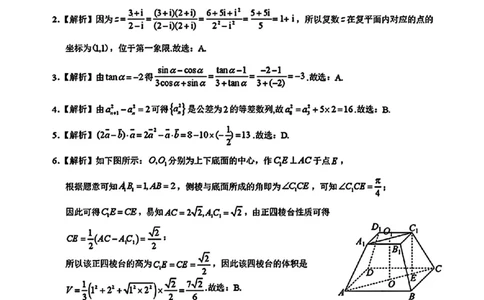 2.【解析】因为 z = (3+i)/(2-i) = (3+i)(2+i)/(2-i)(2+i) = (6+5i+i²)/(2²-i²) = (5+5i)/5 = 1+i，所以复数 z 在复平面内对应的点的
坐标为(1,1)，位于第一象限.故选：A.
3.【解析】由tanα=-2得 (sinα-cosα)/(3cosα+sinα) = (tanα-1)/(3+tanα) = (-2-1)/(3+(-2)) = -3.故选：A.
4.【解析】由 a²ₙ₊₁-a²ₙ=2可得{a²ₙ}是公差为2的等差数列,故
5.【解析】(2a-b)·a=2a²-a·b=8-10×(-1/2)=13.故选：D.
6.【解析】如下图所示：O,O₁分别为上下底面的中心，作C₁E⊥AC于点E，
根据题意可知A₁B₁=1,AB=2，侧棱与底面所成的角即为∠C₁CE，可知∠C₁CE=π/4；
因此可得C₁E=CE，易知AC=2√2,A₁C₁=√2，由正四棱台性质可得
CE=1/2(AC-A₁C₁)=√2/2；
所以该正四棱台的高为C₁E=CE=√2/2，因此该四棱台的体积是
V=1/3(1²+2²+√(1²×2²))×√2/2=7√2/6.故选：B.
D₁ O₁ C₁
A₁ B₁
D O E C
A B